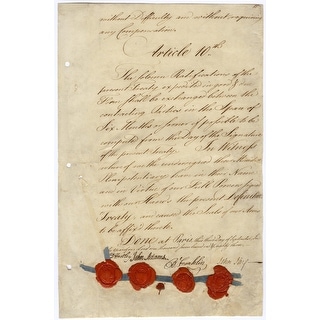 without Difficulty and without requiring
any Compensation.
Article 10th.
The solemn Ratifications of the
present Treaty expedited in good & due
Form shall be exchanged between the
contracting Parties in the Space of
Six Months or sooner if possible to be
computed from the Day of the Signature
of the present Treaty. In Witness
whereof we the undersigned their Ministers
Plenipotentiary have in their Name
and in Virtue of our Full Powers signed
with our Hands the present Definitive
Treaty, and caused the Seals of our Arms
to be affix'd thereto.
Done at Paris, this third Day of September
John Adams
B Franklin
John Jay